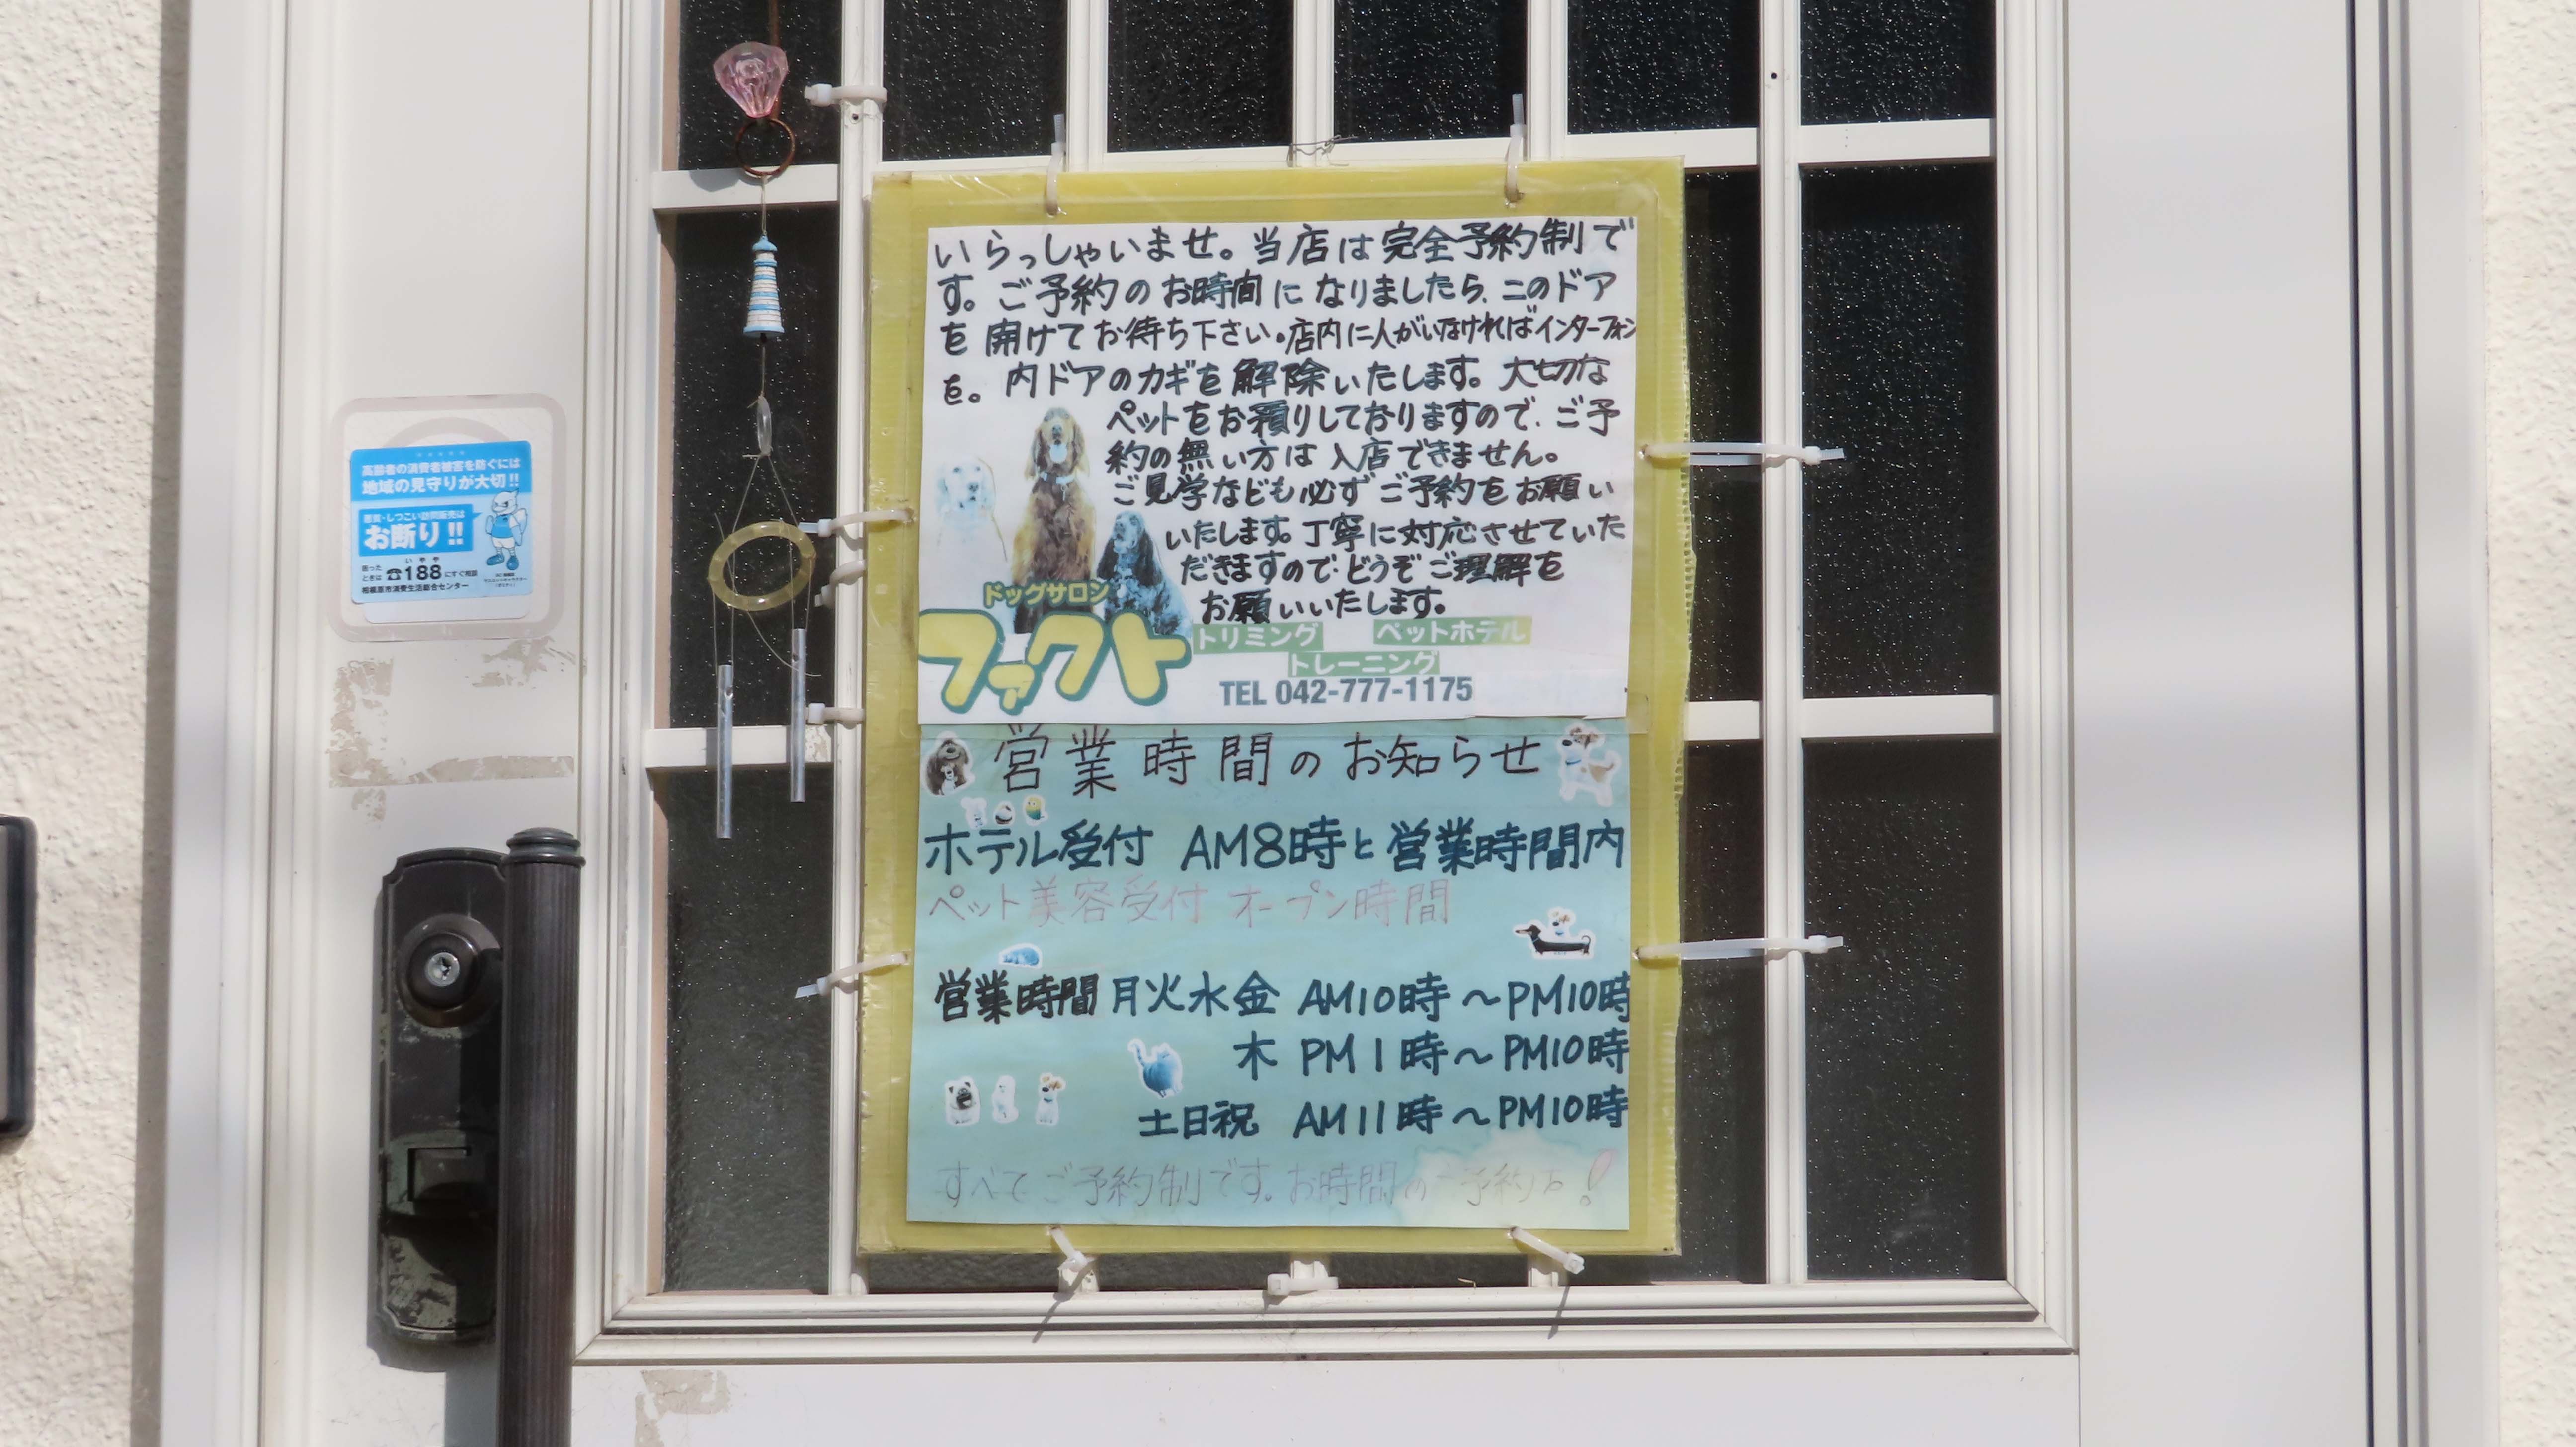 高齢者の消費者被害を防ぐには
地域の見守りが大切!!
悪質・しつこい訪問販売は
お断り!!
困った
ときは
いやや
☎188にすぐ相談
相模原市消費生活総合センター
いらっしゃいませ。当店は完全予約制で
す。ご予約のお時間になりましたら、このドア
を開けてお待ち下さい。店内に人がいなければインターフォン
を。内ドアのカギを解除いたします。大切な
ペットをお預りしておりますので、ご予
約の無い方は入店できません。
ご見学なども必ずご予約をお願い
いたします。丁寧に対応させていた
だきますので、どうぞご理解を
お願いいたします。
ドッグサロン
ファクト
トリミング ペットホテル
トレーニング
TEL 042-777-1175
営業時間のお知らせ
ホテル受付 AM8時と営業時間内
ペット美容受付 オープン時間
営業時間 月火水金 AM10時～PM10時
木 PM1時～PM10時
土日祝 AM11時～PM10時
すべてご予約制です。お時間のご予約を!